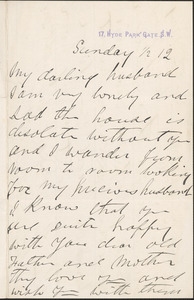 17, HYDE PARK GATE. S.W.
Sunday
My darling husband
I am very lonely and
sad the house is
desolate without you
and I wander from
room to room looking
for my precious husband
I know that you
are quite happy
with your dear old
Father and Mother
they love you and
wish you with them